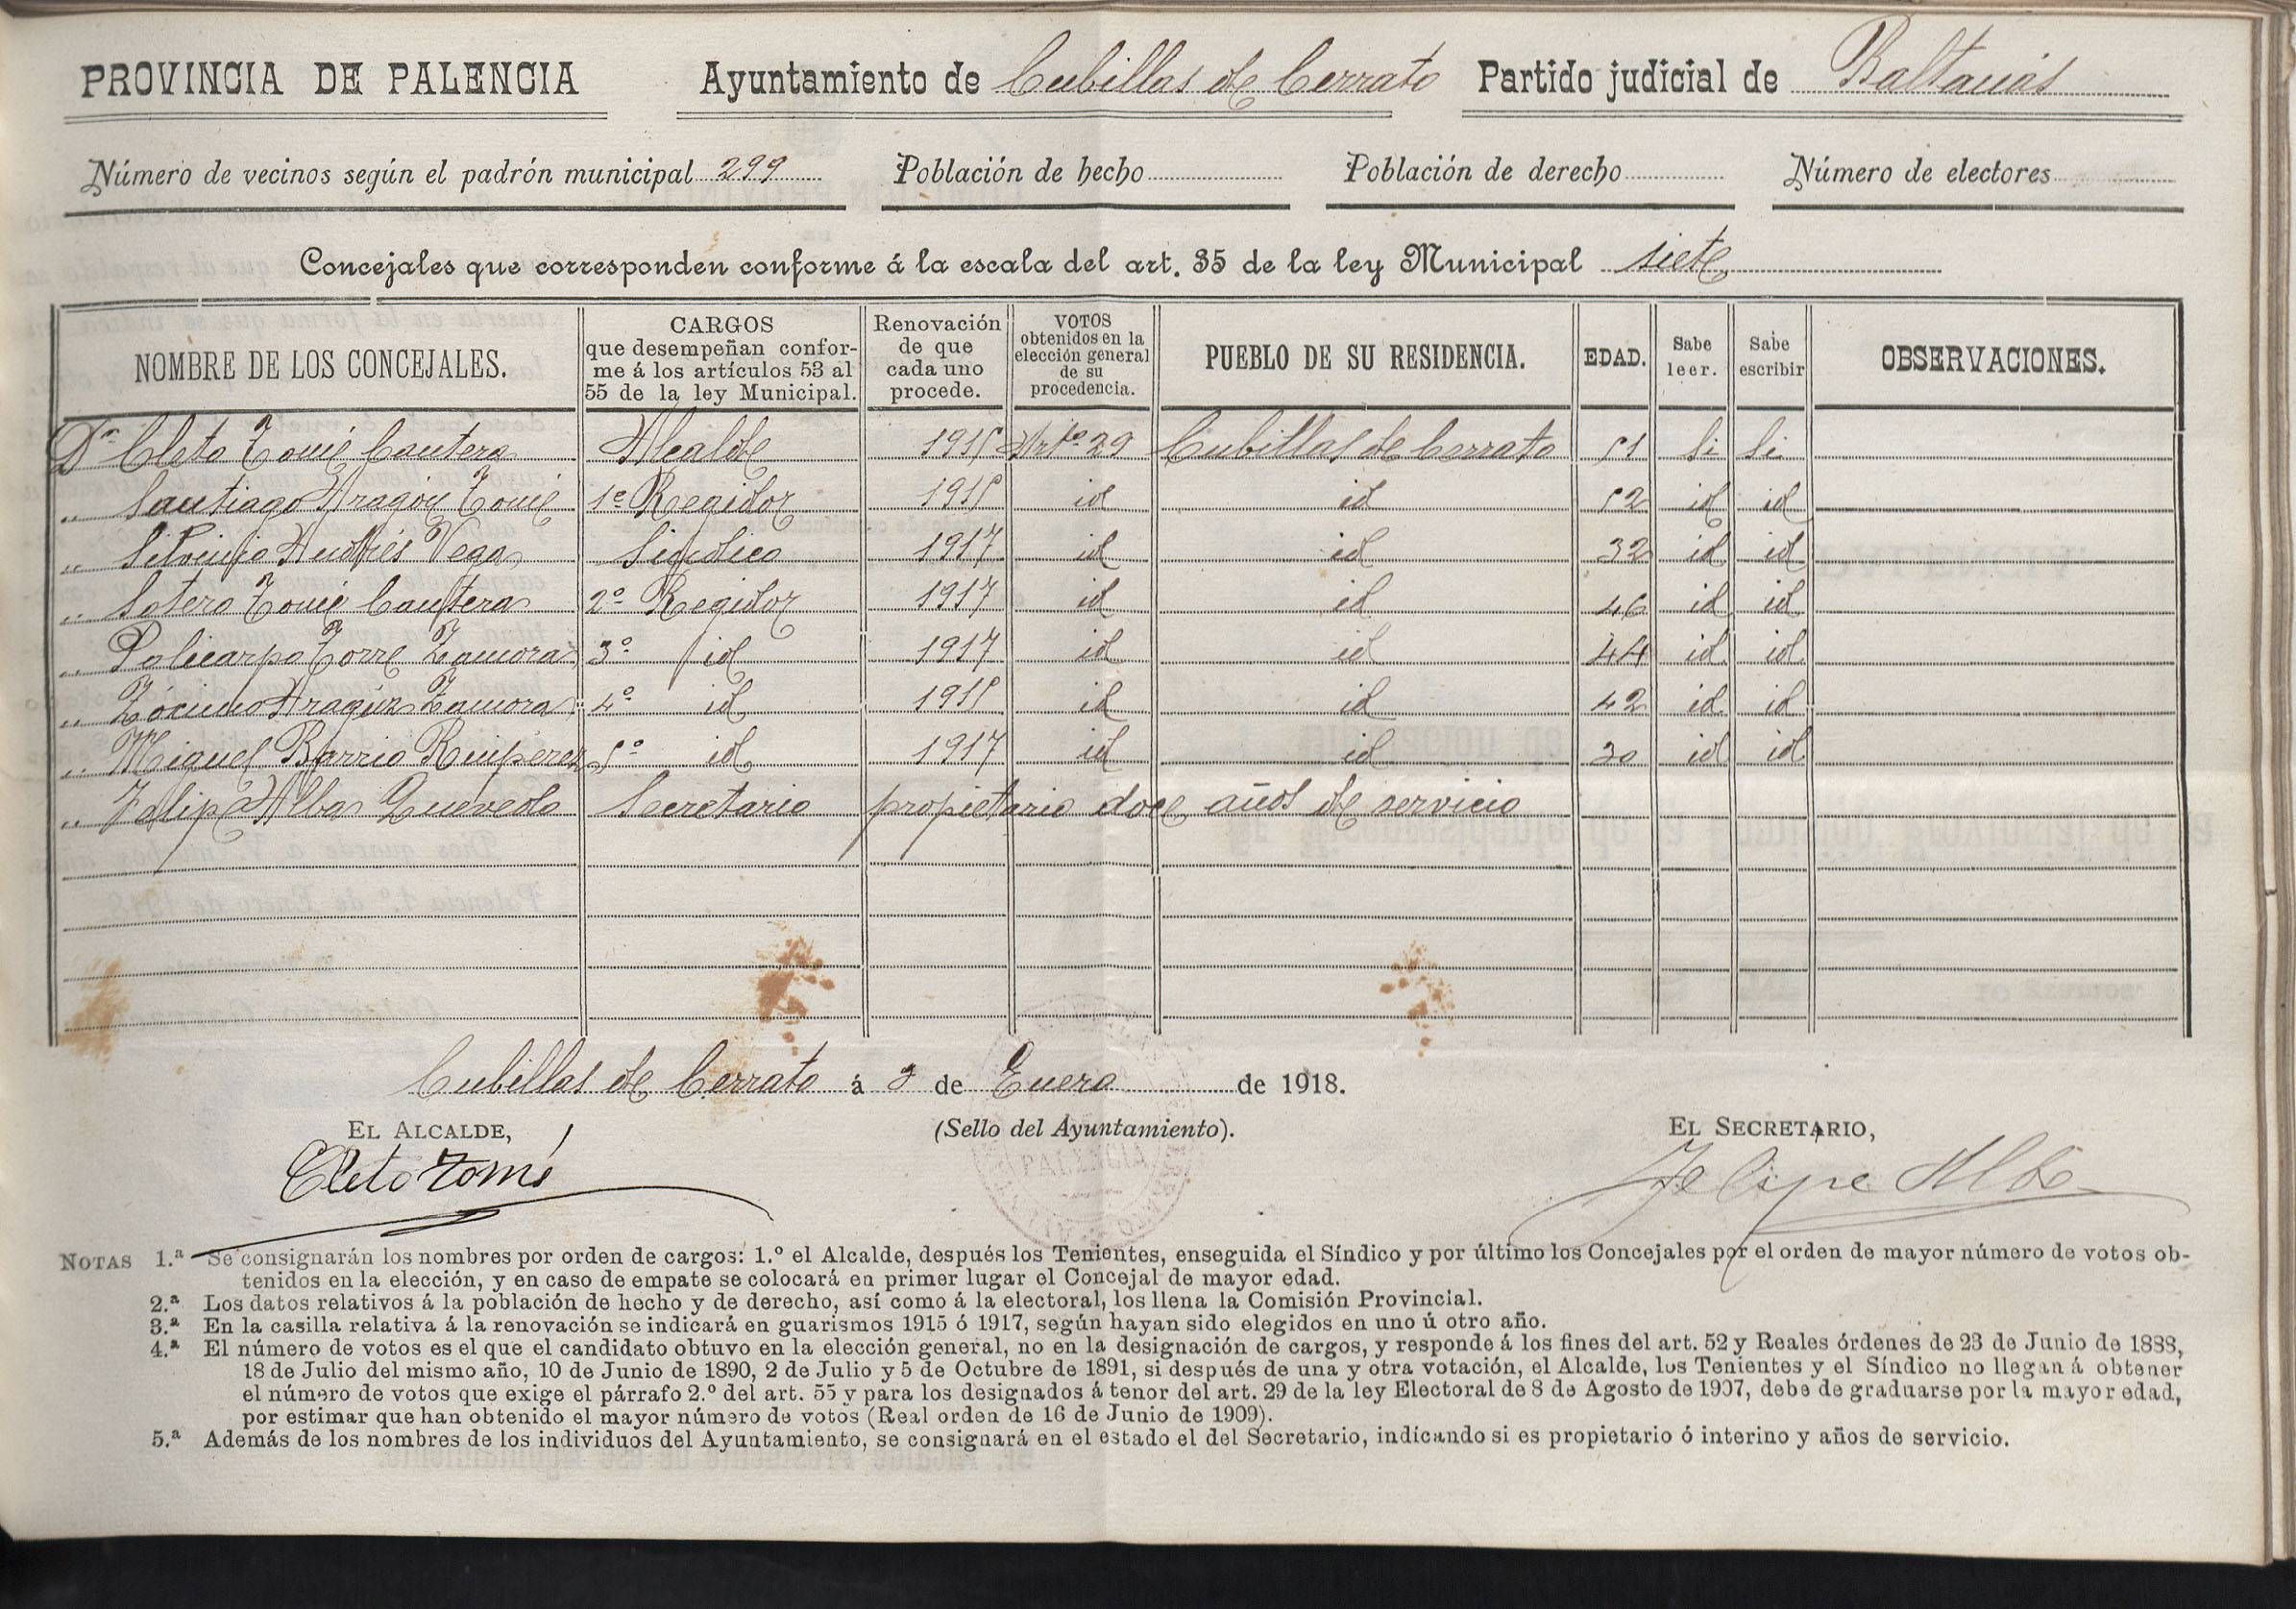 PROVINCIA DE PALENCIA Ayuntamiento de Cubillas de Cerrato Partido judicial de Baltanás
Número de vecinos según el padrón municipal 299 Población de hecho Población de derecho Número de electores
Concejales que corresponden conforme á la escala del art. 35 de la ley Municipal siete
NOMBRE DE LOS CONCEJALES. CARGOS que desempeñan conforme á los artículos 53 al 55 de la ley Municipal. Renovación de que cada uno procede. VOTOS obtenidos en la elección general de su procedencia. PUEBLO DE SU RESIDENCIA. EDAD. Sabe leer. Sabe escribir OBSERVACIONES.
Dn Cleto Tomé Cantera Alcalde 1915 Arto 29 Cubillas de Cerrato 51 Si Si
„ Santiago Aragón Tomé 1º Regidor 1915 id id 52 id id
„ Silvinio Andrés Vega Sindico 1917 id id 32 id id
„ Sotero Tomé Cantera 2º Regidor 1917 id id 46 id id
„ Policarpo Torre Zamora 3º id 1917 id id 44 id id
„ Zócimo Aragón Zamora 4º id 1915 id id 42 id id
„ Miguel Barrio Ruipérez 5º id 1917 id id 30 id id
„ Felipe Alba Quevedo Secretario propietario doce años de servicio
Cubillas de Cerrato á 2 de Enero de 1918.
EL ALCALDE, (Sello del Ayuntamiento). EL SECRETARIO,
Cleto Tomé PALENCIA Felipe Alba
NOTAS 1.ª Se consignarán los nombres por orden de cargos: 1.º el Alcalde, después los Tenientes, enseguida el Síndico y por último los Concejales por el orden de mayor número de votos ob-
tenidos en la elección, y en caso de empate se colocará en primer lugar el Concejal de mayor edad.
2.ª Los datos relativos á la población de hecho y de derecho, así como á la electoral, los llena la Comisión Provincial.
3.ª En la casilla relativa á la renovación se indicará en guarismos 1915 ó 1917, según hayan sido elegidos en uno ú otro año.
4.ª El número de votos es el que el candidato obtuvo en la elección general, no en la designación de cargos, y responde á los fines del art. 52 y Reales órdenes de 23 de Junio de 1888,
18 de Julio del mismo año, 10 de Junio de 1890, 2 de Julio y 5 de Octubre de 1891, si después de una y otra votación, el Alcalde, los Tenientes y el Síndico no llegan á obtener
el número de votos que exige el párrafo 2.º del art. 55 y para los designados á tenor del art. 29 de la ley Electoral de 8 de Agosto de 1907, debe de graduarse por la mayor edad,
por estimar que han obtenido el mayor número de votos (Real orden de 16 de Junio de 1909).
5.ª Además de los nombres de los individuos del Ayuntamiento, se consignará en el estado el del Secretario, indicando si es propietario ó interino y años de servicio.